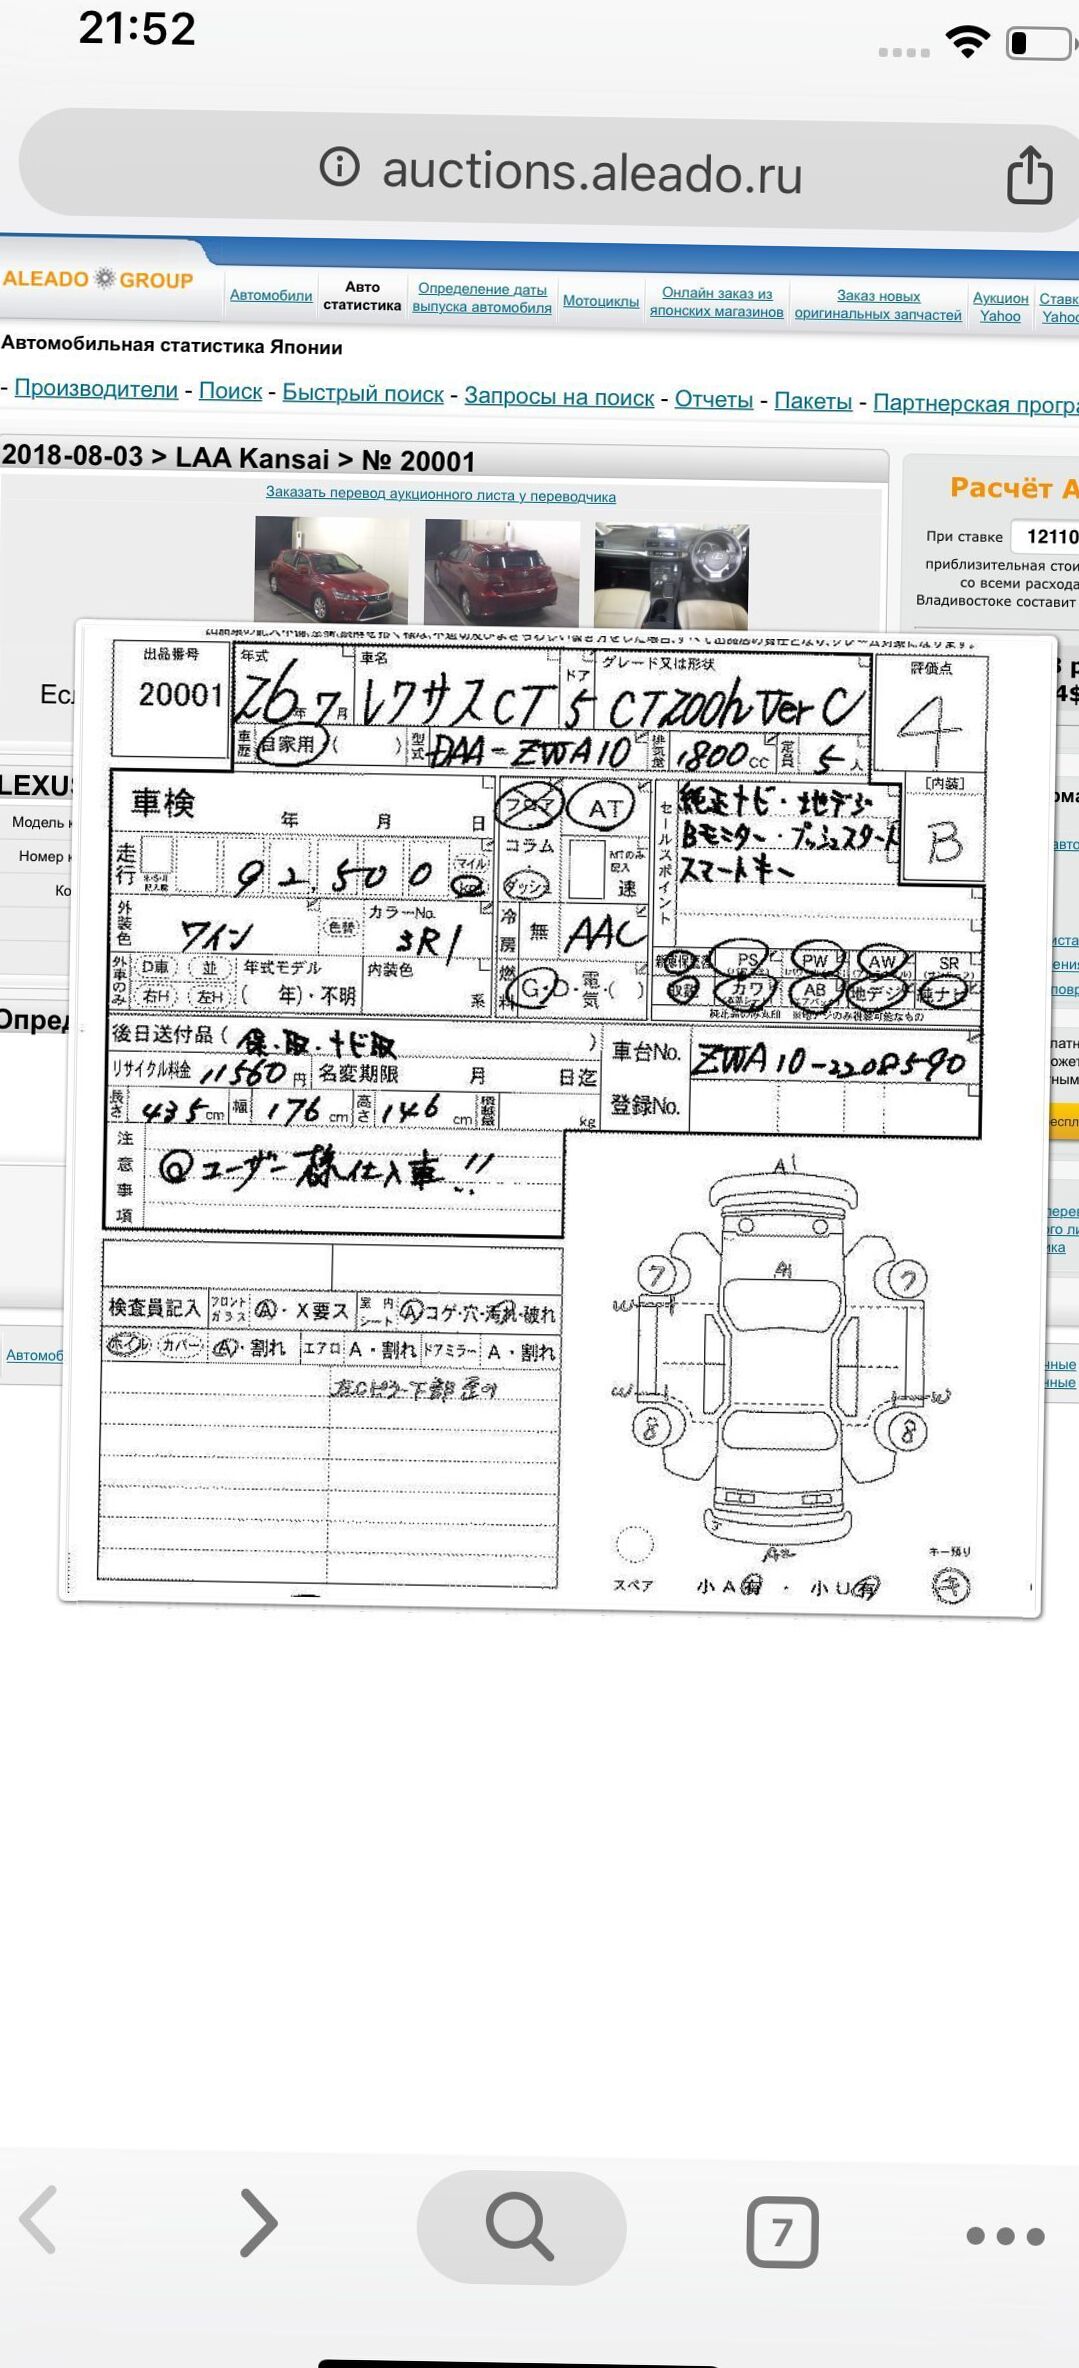 21:52
auctions.aleado.ru
ALEADO GROUP
Автомобили
Авто статистика
Определение даты выпуска автомобиля
Мотоциклы
Онлайн заказ из японских магазинов
Заказ новых оригинальных запчастей
Аукцион Yahoo
Ставк
Yahoo
Автомобильная статистика Японии
- Производители - Поиск - Быстрый поиск - Запросы на поиск - Отчеты - Пакеты - Партнерская програ
2018-08-03 > LAA Kansai > № 20001
Заказать перевод аукционного листа у переводчика
Расчёт А
При ставке 12110
приблизительная стои
со всеми расхода
Владивостоке составит
出品番号 年式 車名 ドア グレード又は形状 評価点
20001 26年7月 レクサスCT 5 CT200h Ver C 4
車歴 自家用 ( ) 型式 DAA-ZWA10 排気量 1800cc 定員 5人
[内装]
B
車検 年 月 日
フロア AT
コラム
ダッシュ
MTのみ記入
速
セールスポイント
純正ナビ・地デジ
Bモニター・プッシュスタート
スマートキー
走行 92,500 マイル km
外装色 ワイン 色替 カラーNo. 3R1
冷房 無 AAC
外車のみ D車 並 年式モデル 内装色
右H 左H ( 年)・不明 系
燃料 G・D・電気・( )
PS PW AW SR
取説 カワ AB 地デジ 純ナビ
後日送付品 ( 保・取・ナビ取 )
車台No. ZWA10-2208590
リサイクル料金 11560円 名変期限 月 日迄
登録No.
長さ 435cm 幅 176cm 高さ 146cm 積載量 kg
注意事項
◎ユーザー様仕入車!!
検査員記入 フロントガラス A・X要ス 室内シート A コゲ・穴・汚れ・破れ
ホイル カバー A・割れ エアロ A・割れ ドアミラー A・割れ
左Cピラー下部
A1
7 7
W
W W
8 8
A2
スペア 小A有・小U有
キー預り
キ
LEXUS
Модель к
Номер к
Ко
Опред
Автомоб
7